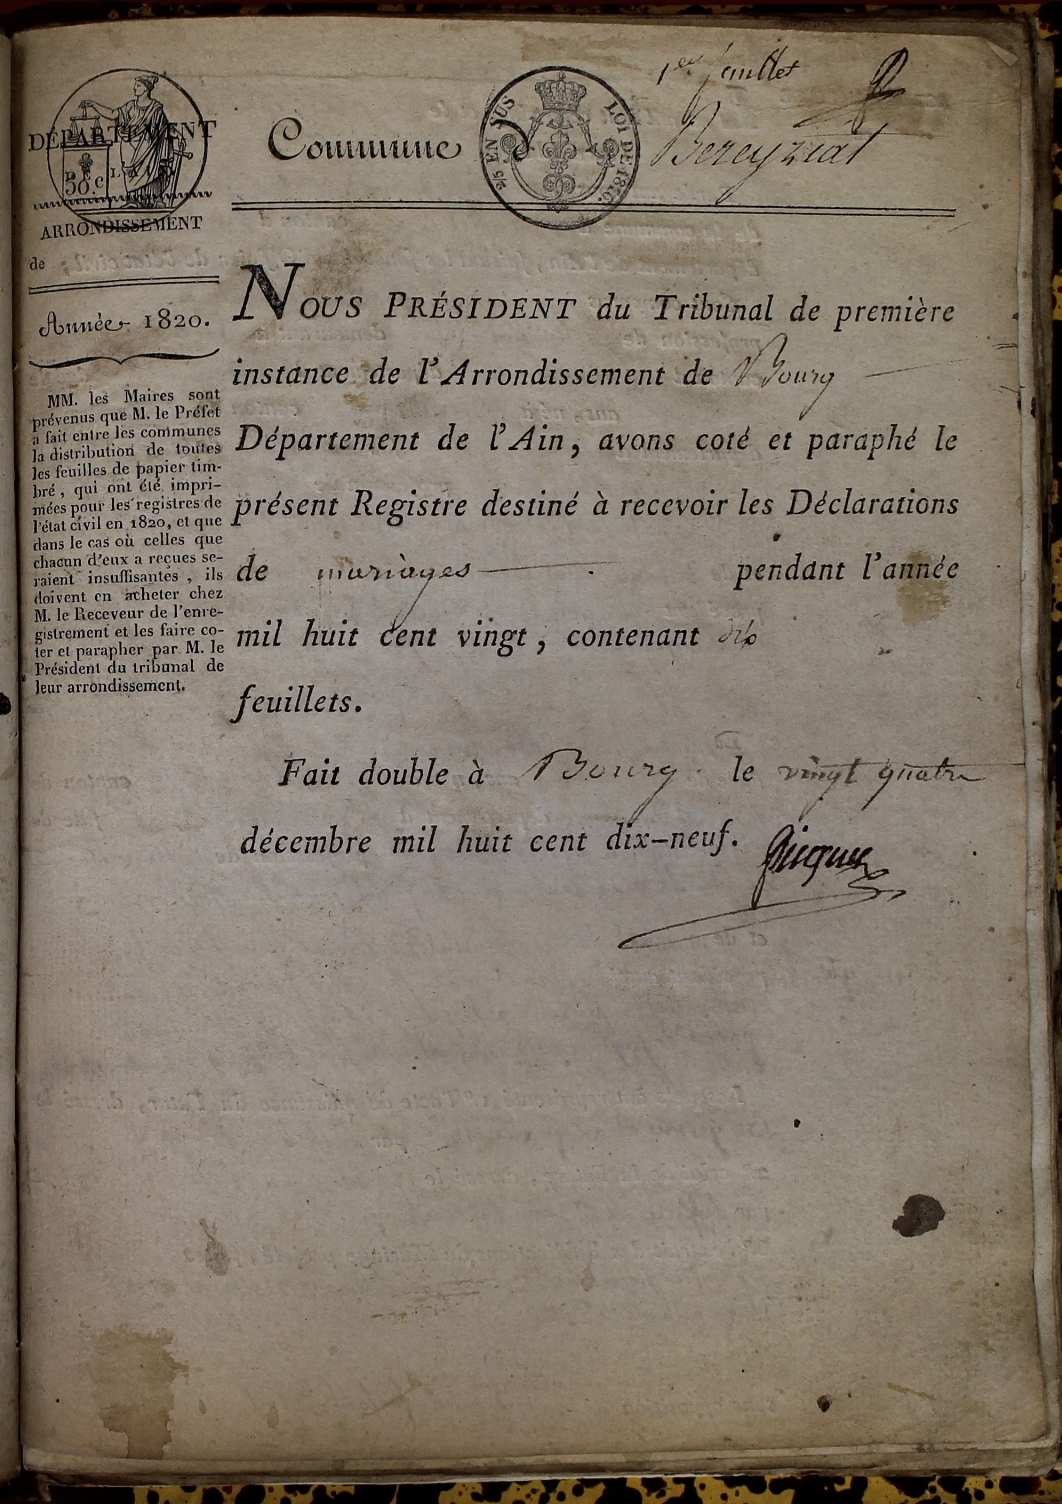 1er feuillet
DÉPARTEMENT
Commune
Bereyziat
2/5 EN SUS
LOI DE 1816.
30.c
ARRONDISSEMENT
de
Année 1820.
MM. les Maires sont
prévenus que M. le Préfet
a fait entre les communes
la distribution de toutes
les feuilles de papier tim-
bré, qui ont été impri-
mées pour les registres de
l'état civil en 1820, et que
dans le cas où celles que
chacun d'eux a reçues se-
raient insuffisantes, ils
doivent en acheter chez
M. le Receveur de l'enre-
gistrement et les faire co-
ter et parapher par M. le
Président du tribunal de
leur arrondissement.
NOUS PRÉSIDENT du Tribunal de première
instance de l'Arrondissement de Bourg
Département de l'Ain, avons coté et paraphé le
présent Registre destiné à recevoir les Déclarations
de mariages pendant l'année
mil huit cent vingt, contenant dix
feuillets.
Fait double à Bourg le vingt quatre
décembre mil huit cent dix-neuf.